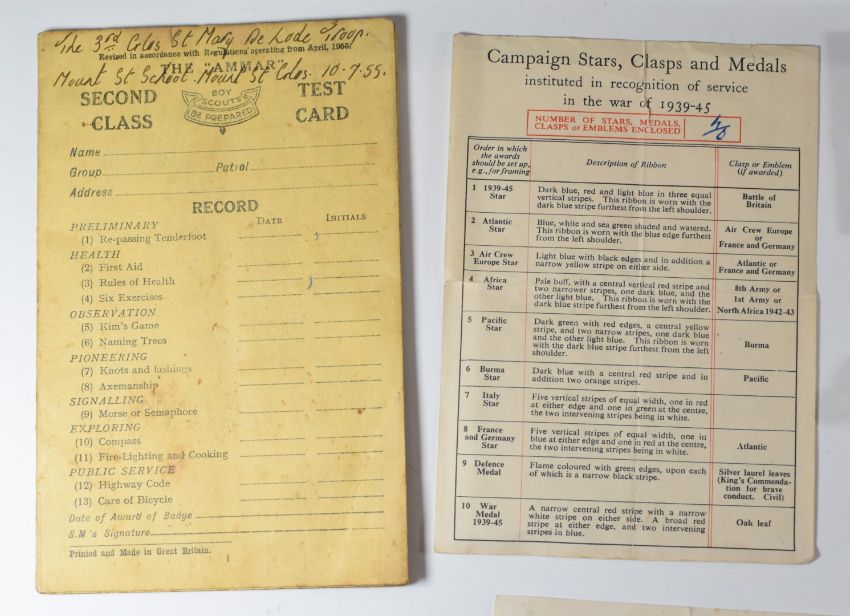 The 3rd Glos St Mary De Lode Troop.
Revised in accordance with Regulations operating from April, 1953.
THE "AMMAR"
Mount St School. Mount St Glos. 10.7.55.
SECOND CLASS
BOY SCOUTS
BE PREPARED
TEST CARD
Name
Group Patrol
Address
RECORD
DATE INITIALS
PRELIMINARY
(1) Re-passing Tenderfoot
HEALTH
(2) First Aid
(3) Rules of Health
(4) Six Exercises
OBSERVATION
(5) Kim's Game
(6) Naming Trees
PIONEERING
(7) Knots and lashings
(8) Axemanship
SIGNALLING
(9) Morse or Semaphore
EXPLORING
(10) Compass
(11) Fire-Lighting and Cooking
PUBLIC SERVICE
(12) Highway Code
(13) Care of Bicycle
Date of Award of Badge
S.M's Signature
Printed and Made in Great Britain.
Campaign Stars, Clasps and Medals
instituted in recognition of service
in the war of 1939-45
NUMBER OF STARS, MEDALS,
CLASPS or EMBLEMS ENCLOSED
Order in which
the awards
should be set up,
e.g., for framing
Description of Ribbon
Clasp or Emblem
(if awarded)
1 1939-45
Star
Dark blue, red and light blue in three equal
vertical stripes. This ribbon is worn with the
dark blue stripe furthest from the left shoulder.
Battle of
Britain
2 Atlantic
Star
Blue, white and sea green shaded and watered.
This ribbon is worn with the blue edge furthest
from the left shoulder.
Air Crew Europe
or
France and Germany
3 Air Crew
Europe Star
Light blue with black edges and in addition a
narrow yellow stripe on either side.
Atlantic or
France and Germany
4 Africa
Star
Pale buff, with a central vertical red stripe and
two narrower stripes, one dark blue, and the
other light blue. This ribbon is worn with the
dark blue stripe furthest from the left shoulder.
8th Army or
1st Army or
North Africa 1942-43
5 Pacific
Star
Dark green with red edges, a central yellow
stripe, and two narrow stripes, one dark blue
and the other light blue. This ribbon is worn
with the dark blue stripe furthest from the left
shoulder.
Burma
6 Burma
Star
Dark blue with a central red stripe and in
addition two orange stripes.
Pacific
7 Italy
Star
Five vertical stripes of equal width, one in red
at either edge and one in green at the centre,
the two intervening stripes being in white.
8 France
and Germany
Star
Five vertical stripes of equal width, one in
blue at either edge and one in red at the centre,
the two intervening stripes being in white.
Atlantic
9 Defence
Medal
Flame coloured with green edges, upon each
of which is a narrow black stripe.
Silver laurel leaves
(King's Commenda-
tion for brave
conduct. Civil)
10 War
Medal
1939-45
A narrow central red stripe with a narrow
white stripe on either side. A broad red
stripe at either edge, and two intervening
stripes in blue.
Oak leaf